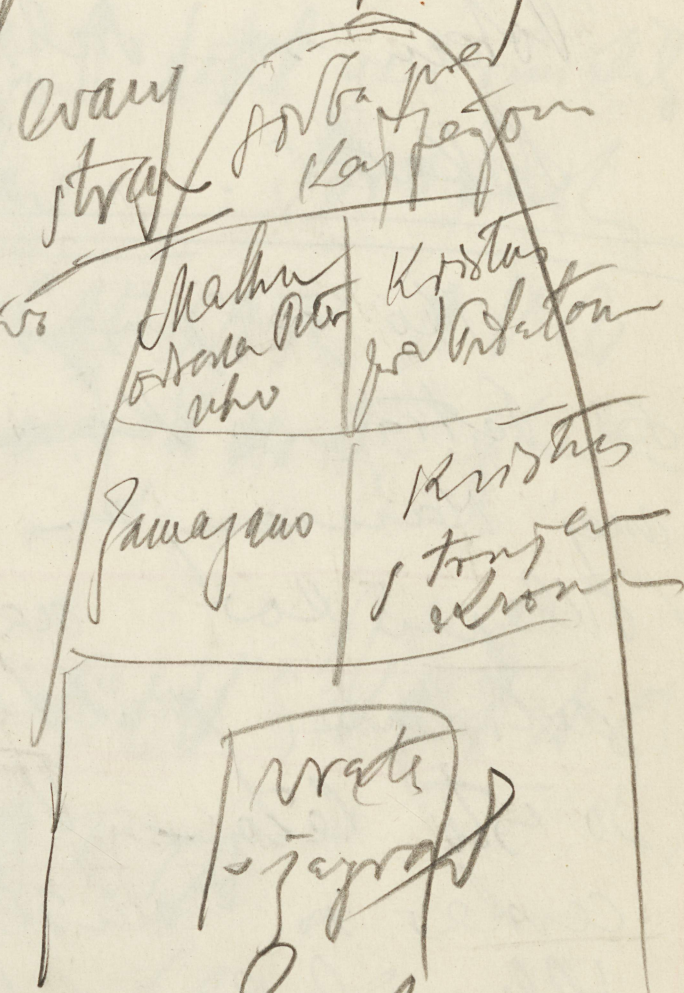 evang
stran
sodba pred
Kajfežom
Malhu
odseka Peter
uho
Kristus
pred Pilatom
Zamazano
Kristus
s trnjevo
krono
vrata
v žagrad